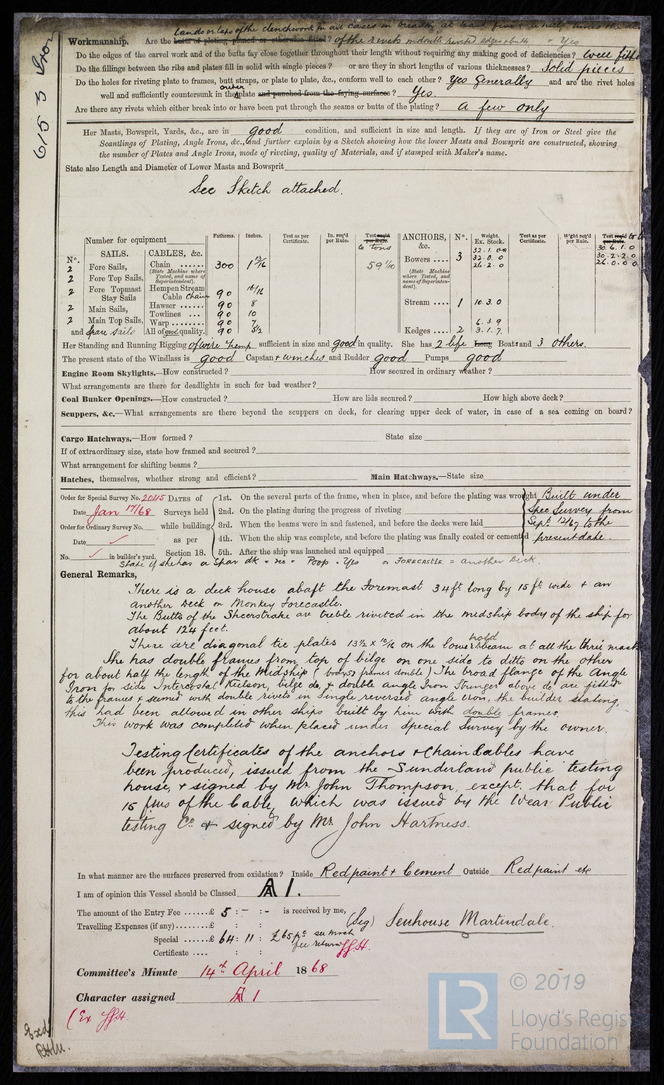 Lands or laps of the clenchwork in all cases in breadth at least five
Workmanship. Are the butts of plating planed or otherwise fitted? edges & butts Yes
Do the edges of the carvel work and of the butts lay close together throughout their length without requiring any making good of deficiencies? well fitted
Do the fillings between the ribs and plates fill in solid with single pieces? or are they in short lengths of various thicknesses? Solid pieces
Do the holes for riveting plate to frames, butt straps, or plate to plate, &c., conform well to each other? Yes Generally and are the rivet holes
well and sufficiently countersunk in the outer plate and punched from the faying surfaces? Yes.
Are there any rivets which either break into or have been put through the seams or butts of the plating? a few only
Her Masts, Bowsprit, Yards, &c., are in good condition, and sufficient in size and length. If they are of Iron or Steel give the
Scantlings of Plating, Angle Irons, &c., and further explain by a Sketch showing how the lower Masts and Bowsprit are constructed, showing
the number of Plates and Angle Irons, mode of riveting, quality of Materials, and if stamped with Maker's name.
State also Length and Diameter of Lower Masts and Bowsprit
See Sketch attached.
Number for equipment Fathoms. Inches. Test as per Certificate. In. req'd per Rule. Test req'd per Rule. ANCHORS, &c. N°. Weight. Ex. Stock. Test as per Certificate. W'ght req'd per Rule. Test req'd per Rule.
N°. SAILS. CABLES, &c.
2 Fore Sails, Chain 300 59 1/10 Bowers 3 32.0.0 26.2.0 30.2.2.0 26.0.0.0
(State Machine where Tested, and name of Superintendent).
2 Fore Top Sails,
2 Fore Topmast Stay Sails Hempen Stream Cable chain 90
2 Main Sails, Hawser 90 8 Stream 1 10.3.0
2 Main Top Sails, Towlines 90 10
Warp 90 7 6.3.9
and spare sails All of good quality. 90 Kedges 2 3.1.7.
Her Standing and Running Rigging of wire & hemp sufficient in size and good in quality. She has 2 life Long Boats and 3 others.
The present state of the Windlass is good Capstan & winches and Rudder good Pumps good
Engine Room Skylights.—How constructed? How secured in ordinary weather?
What arrangements are there for deadlights in such for bad weather?
Coal Bunker Openings.—How constructed? How are lids secured? How high above deck?
Scuppers, &c.—What arrangements are there beyond the scuppers on deck, for clearing upper deck of water, in case of a sea coming on board?
Cargo Hatchways.—How formed? State size
If of extraordinary size, state how framed and secured?
What arrangement for shifting beams?
Hatches, themselves, whether strong and efficient? Main Hatchways.—State size
Order for Special Survey No. 2015 DATES of 1st. On the several parts of the frame, when in place, and before the plating was wrought Built under
Date Jan 17/68 Surveys held 2nd. On the plating during the progress of riveting Spec Survey from
Order for Ordinary Survey No. while building 3rd. When the beams were in and fastened, and before the decks were laid Sept. 12/67 to the
Date as per 4th. When the ship was complete, and before the plating was finally coated or cemented present date.
No. in builder's yard. Section 18. 5th. After the ship was launched and equipped
State if she has a Spar dk = no = Poop = Yes or Forecastle = another Deck
General Remarks,
There is a deck house abaft the Foremast 34 ft long by 15 ft wide & an
another Deck or Monkey Forecastle.
The Butts of the Sheerstrake are treble riveted in the midship body of the ship for
about 124 feet.
There are diagonal tie plates on the lower hold beams at all the three masts
She has double frames from top of bilge on one side to ditto on the other
for about half the length of the Midship (body frames double) The broad flange of the Angle
Iron for side Intercostal Keelson, bilge do, & double angle Iron Stringer above do, are fitted
to the frames & seamed with double rivets in single reversed angle iron, the builder stating
this had been allowed in other ships built by him with double frames
This work was completed when placed under special Survey by the owner.
Testing Certificates of the anchors & Chain Cables have
been produced, issued from the Sunderland public testing
house, & signed by Mr John Thompson, except that for
15 fms of the Cable, which was issued by the Wear Public
testing Co & signed by Mr. John Hartness.
In what manner are the surfaces preserved from oxidation? Inside Red paint & Cement Outside Red paint etc
I am of opinion this Vessel should be Classed A 1.
The amount of the Entry Fee ......£ 5 : - : - is received by me, (Sig) Senhouse Martindale.
Travelling Expenses (if any) ......£ : :
Special ......£ 64 : 11 :
Certificate .... : :
Committee's Minute 14th April 1868
Character assigned A 1
© 2019
LR
Lloyd's Regis
Foundation
615 S Iron
Exd